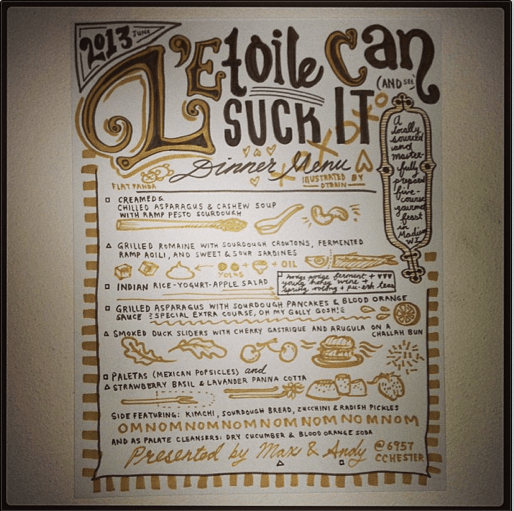 2013 JUNE
L'Etoile Can
(AND SHE)
SUCK IT
XOXO
Dinner Menu
ILLUSTRATED BY
DTRAIN
FLAT PANDA
A
locally
sourced
and
master-
fully
prepared
five-
course
gourmet
feast
in
Madison
WI
CREAMED &
CHILLED ASPARAGUS & CASHEW SOUP
WITH RAMP PESTO SOURDOUGH
GRILLED ROMAINE WITH SOURDOUGH CROUTONS, FERMENTED
RAMP AOILI, AND SWEET & SOUR SARDINES
+ OIL
INDIAN RICE-YOGURT-APPLE SALAD
hodge podge ferment +
young honey wine +
spring tea
GRILLED ASPARAGUS WITH SOURDOUGH PANCAKES & BLOOD ORANGE
SAUCE SPECIAL EXTRA COURSE, OH MY GOLLY GOSH!
SMOKED DUCK SLIDERS WITH CHERRY GASTRIQUE AND ARUGULA ON A
CHALLAH BUN
PALETAS (MEXICAN POPSICLES) and
STRAWBERRY BASIL & LAVANDER PANNA COTTA
SIDE FEATURING: KIMCHI, SOURDOUGH BREAD, ZUCCHINI & RADISH PICKLES
OMNOMNOMNOMNOMNOMNOMNOM
AND AS PALATE CLEANSERS: DRY CUCUMBER & BLOOD ORANGE SODA
Presented by Max & Andy @6957
CCHESTER